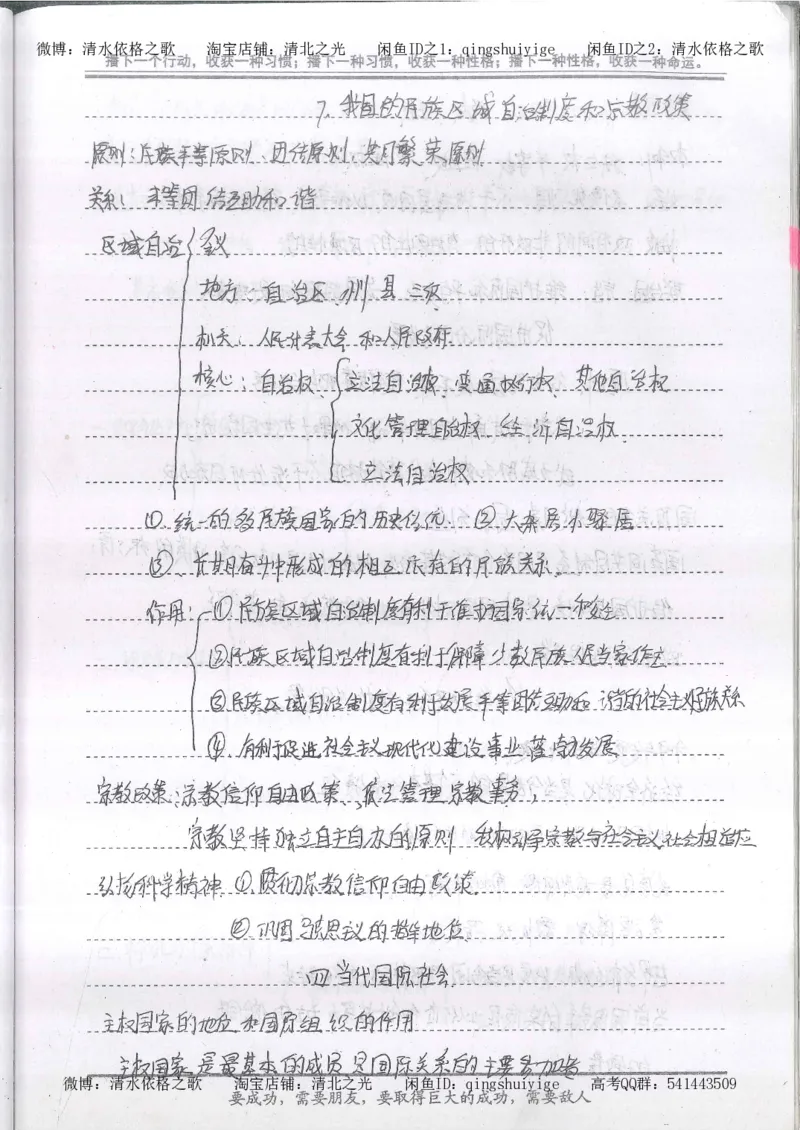 微博：清水依格之歌 淘宝店铺：清北之光 闲鱼ID之1：qingshuiyige 闲鱼ID之2：清水依格之歌
播下一个行动，收获一种习惯；播下一种习惯，收获一种性格；播下一种性格，收获一种命运。
7、我国的民族区域自治制度和宗教政策
原则：民族平等原则、团结原则、共同繁荣原则
关系：平等团结互助和谐
区域自治 含义
地方：自治区、州、县 三级
机关：人民代表大会 和人民政府
核心：自治权 立法自治权、变通执行权、其他自治权
文化管理自治权 经济自治权
立法自治权
①、统一的多民族国家的历史传统 ②大杂居小聚居
③、长期奋斗中形成的相互依存的民族关系
作用：①民族区域自治制度有利于维护国家统一和安全
②民族区域自治制度有利于保障少数民族人民当家作主
③民族区域自治制度有利于发展平等团结互助和谐的社会主义民族关系
④、有利于促进社会主义现代化建设事业蓬勃发展
宗教政策：宗教信仰自由政策、依法管理宗教事务，
宗教坚持独立自主自办的原则 积极引导宗教与社会主义社会相适应
弘扬科学精神 ①贯彻宗教信仰自由政策
②、巩固 的指导地位
四 当代国际社会
主权国家的地位和国际组织的作用
主权国家是最基本的成员 是国际关系的主要参加者
微博：清水依格之歌 淘宝店铺：清北之光 闲鱼ID：qingshuiyige 高考QQ群：541443509
要成功，需要朋友，要取得巨大的成功，需要敌人